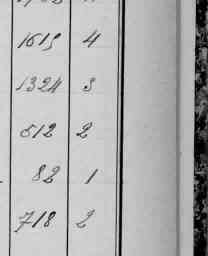 1615 4
1324 3
512 2
82 1
718 2